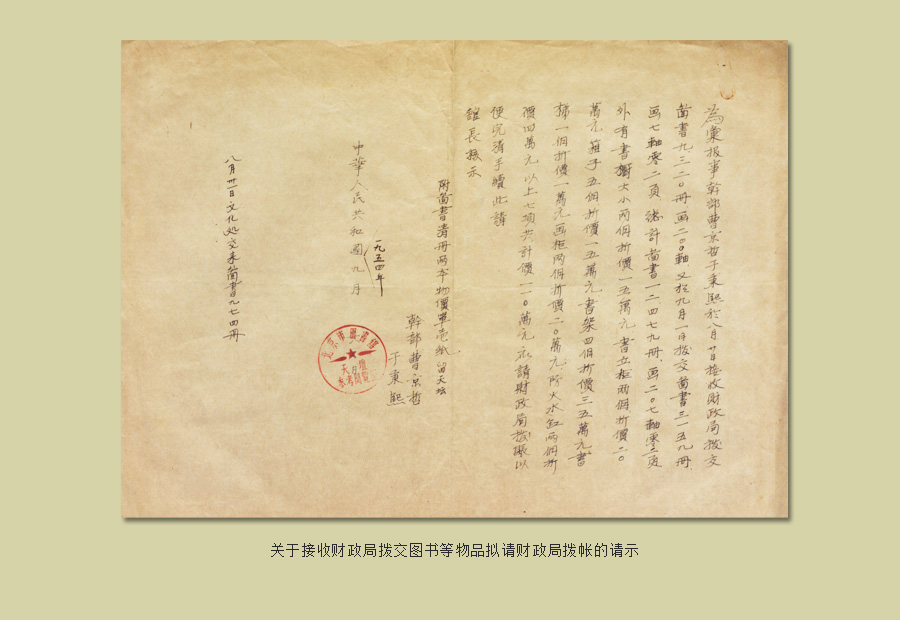 为彙报事幹部曹京哲于秉熙於八月廿日接收財政局撥交
啚書九三二〇冊画二〇〇軸又於九月一日接交啚書三一五九冊
画七軸零二頁總計啚書一二四七九冊、画二〇七軸零二頁
外有書橱大小两個折價一五萬元書立柜两個折價二〇
萬元箱子五個折價一五萬元書架四個折價三五萬元書
梯一個折價一萬元画柜两個折價二〇萬元、防火水缸两個折
價四萬元以上七項共計價一一〇萬元擬請財政局撥賬以
便完清手續此請
舘長核示
附啚書清冊两本物價單壱紙留天坛
幹部曹京哲
于秉熙
一九五四年
中華人民共和國九月
北京市圖書館
天壇
参考閱覽
八月卅一日文化处交来啚書九七四冊
关于接收财政局拨交图书等物品拟请财政局拨帐的请示